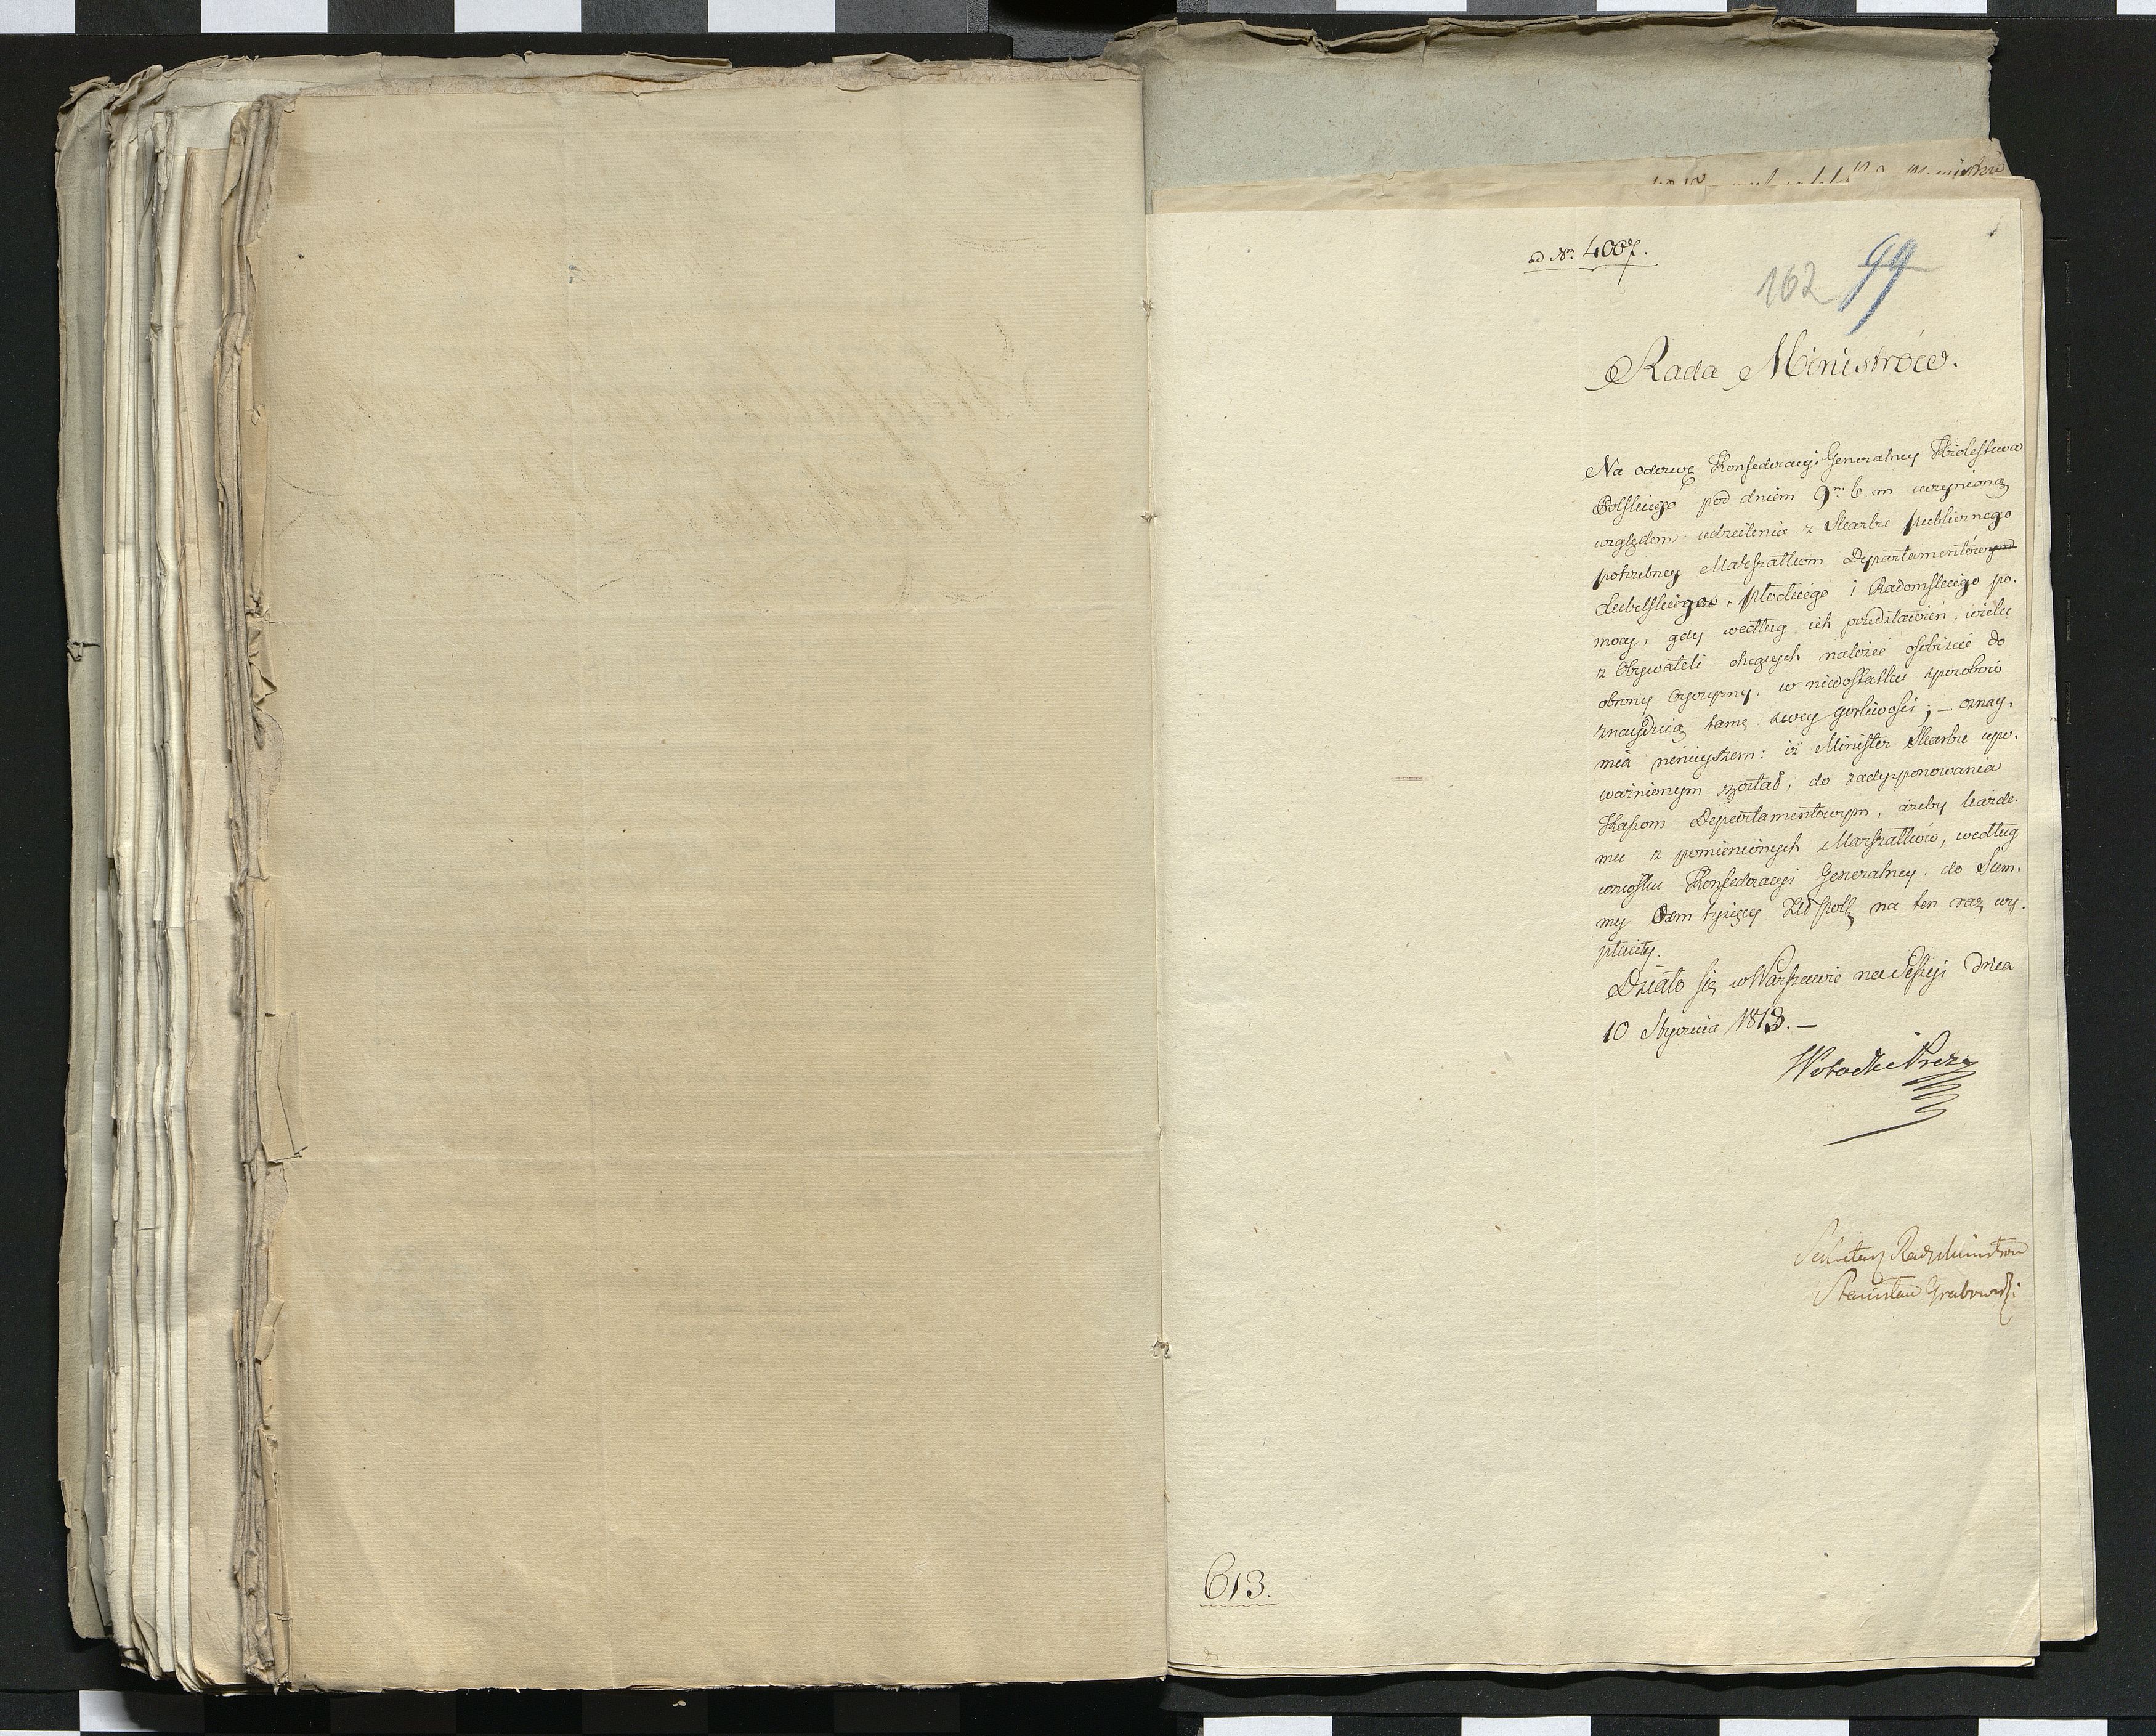 ad Nr. 4007.
162 99
Rada Ministrów.
Na odezwę Konfederacyi Generalney Królestwa
Polskiego pod dniem 9m b. m uczynioną
względem udzielenia z Skarbu publicznego
potrzebney Marszałkom Departamentów
Lubelskiego, Płockiego i Radomskiego po.
mocy, gdy według ich przedstawień, wielu
z Obywateli chcących należeć osobiście do
obrony Oyczyzny, w niedostatku sposobów
znayduią tamę swey gorliwości; – oznay.
mia ninieyszem: iż Minister Skarbu upo.
ważnionym został, do zadysponowania
Kassom Departamentowym, ażeby każde.
mu z pomienionych Marszałków, według
wniosku Konfederacyi Generalney do Sum.
my Ośm tysięcy Zło polk na ten raz wy.
płaciły.
Działo się w Warszawie na Sessyi dnia
10 Stycznia 1813. –
Sekretarz Rady Ministrów
Stanisław Grabowski
613.